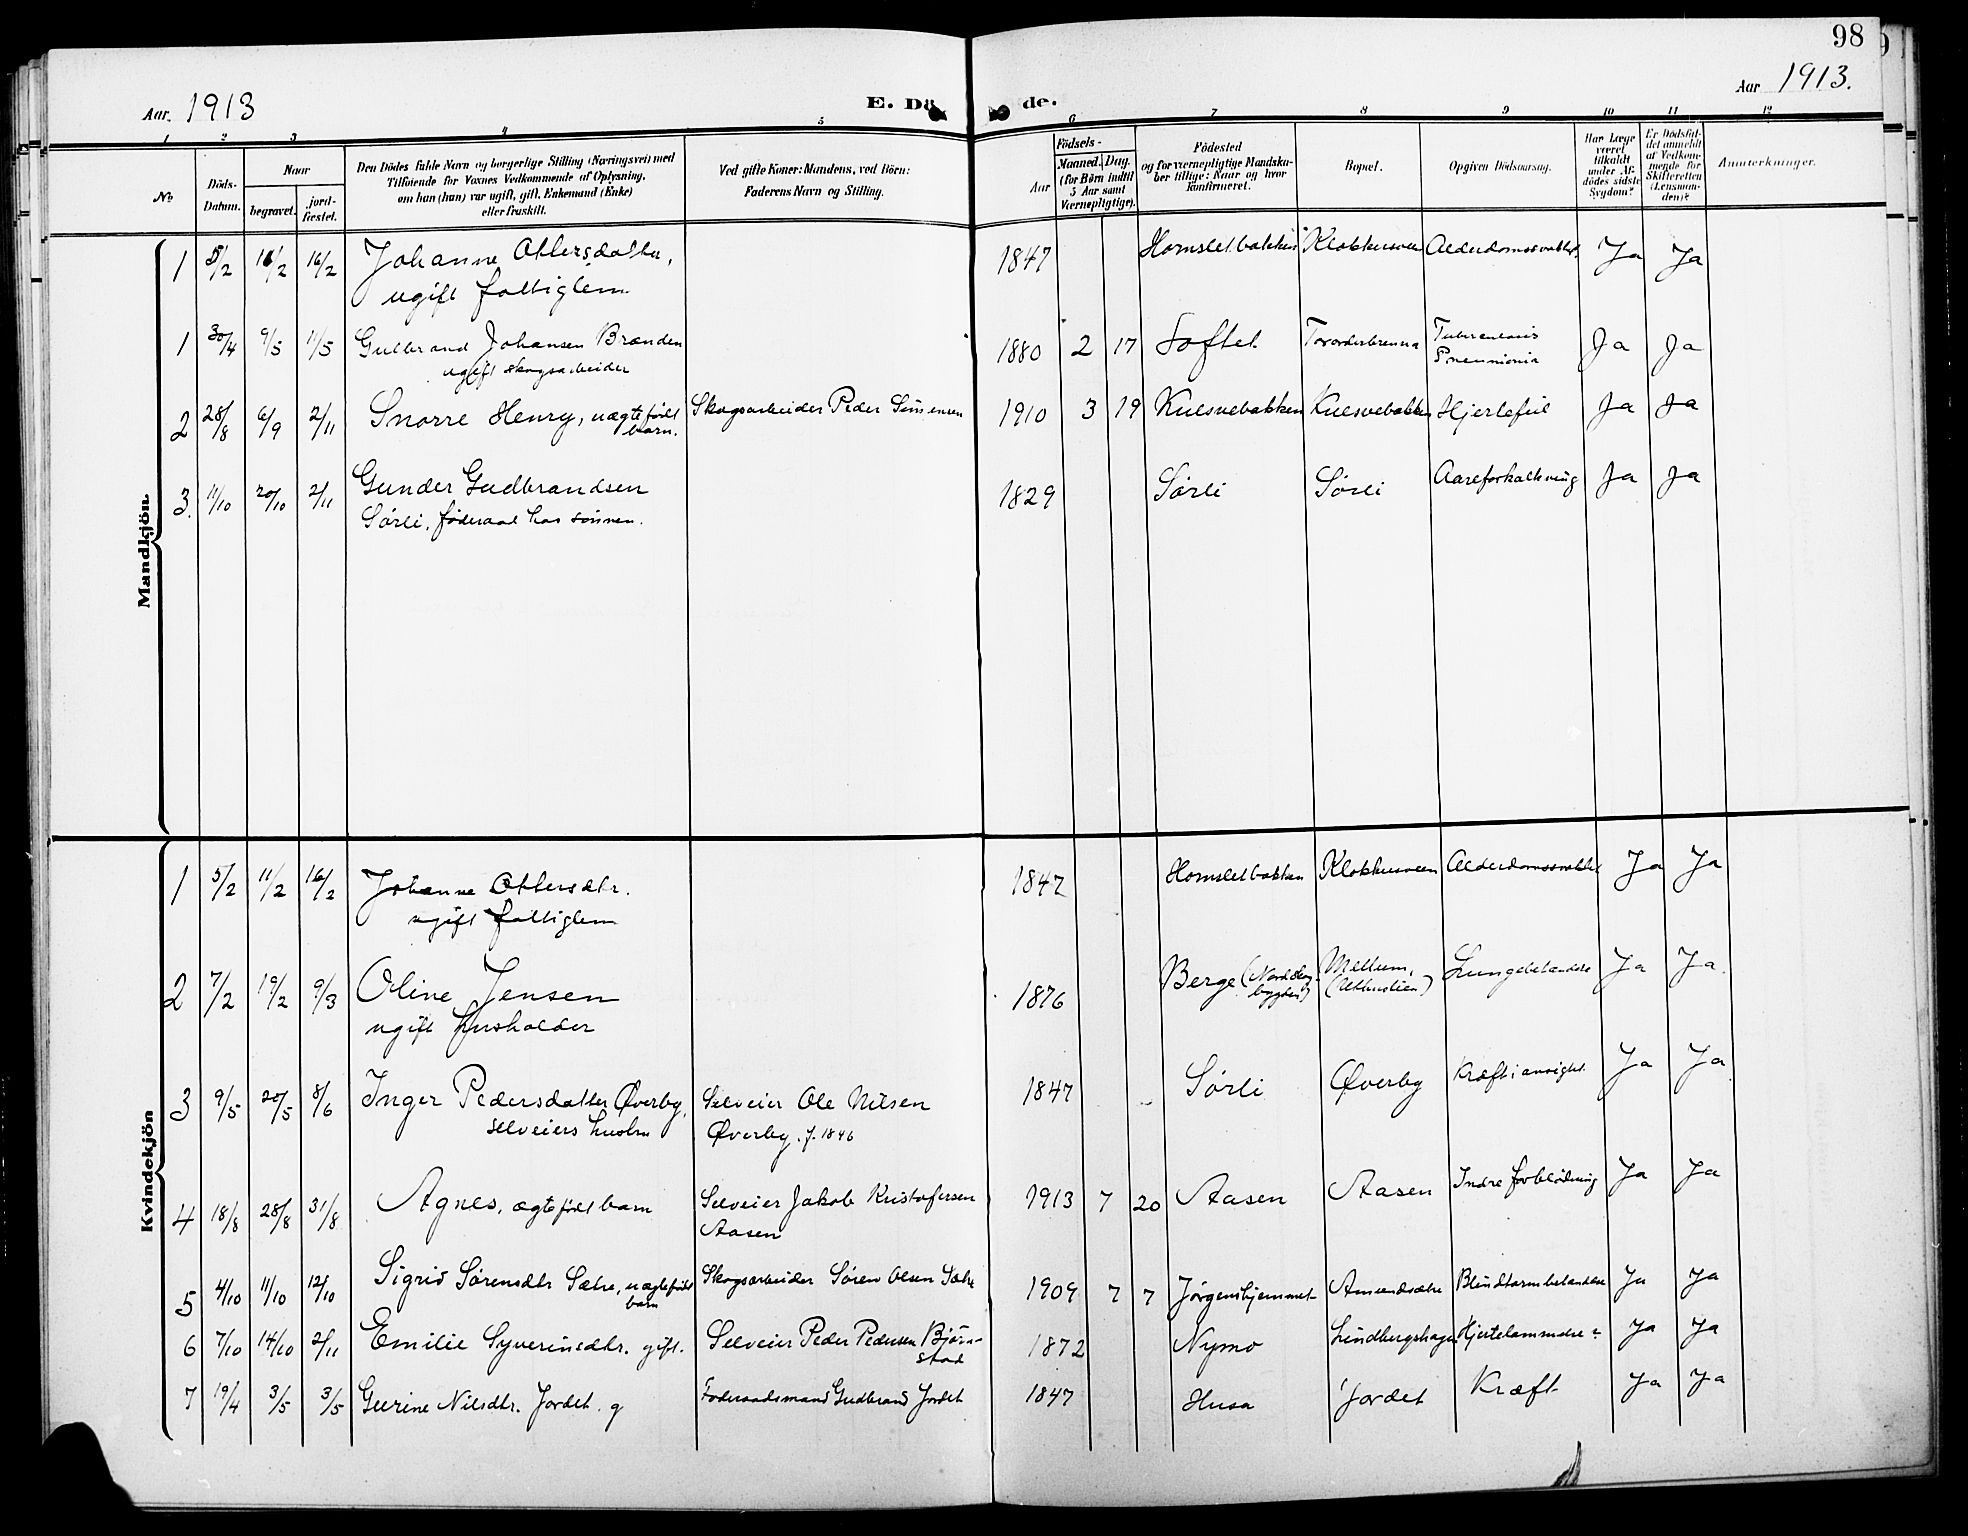 98
Aar. 1913
E. Dö
de.
Aar 1913.
1 2 3 4 5 6 7 8 9 10 11 12
No
Döds-Datum.
Naar
begravet.
jord-fæstet.
Den Dödes fulde Navn og borgerlige Stilling (Næringsvei) med
Tilföiende for Voxnes Vedkommende af Oplysning,
om han (hun) var ugift, gift, Enkemand (Enke)
eller fraskilt.
Ved gifte Koner: Mandens, ved Börn:
Faderens Navn og Stilling.
Födsels-
Aar
Maaned. Dag.
(for Börn indtil
5 Aar samt
Værnepligtige).
Födested
og for værnepligtige Mandska-
ber tillige: Naar og hvor
konfirmeret.
Bopæl.
Opgiven Dödsaarsag.
Har Læge
været
tilkaldt
under Af-
dödes sidste
Sygdom?
Er Dödsfal-
det anmeldt
af Vedkom-
mende for
Skifteretten
(Lensman-
den)?
Anmærkninger.
Mandkjön.
1 5/2 11/2 16/2 Johanne Ottersdatter, 1847 Homsletbakken Klokkersveen Alderdomssvakhet. Ja Ja
ugift fattiglem
1 30/4 9/5 11/5 Gulbrand Johansen Brænden 1880 2 17 Toftet Torarderbrenna Tuberculosis Ja Ja
ugift skogsarbeider Pneumonia
2 28/8 6/9 2/11 Snorre Henry, uægtefødt Skogsarbeider Peder Simensen 1910 3 19 Kulsvebakken Kulsvebakken Hjertefeil Ja Ja
barn.
3. 11/10 20/10 2/11 Gunder Gudbrandsen 1829 Sørli Sørli Aareforkalkning Ja Ja
Sørli, føderaad hos sønnen.
Kvindekjön
1 5/2 11/2 16/2 Johanne Ottersdtr. 1847 Homsletbakken Klokkersveen Alderdomssvakhet Ja Ja
ugift fattiglem
2 7/2 19/2 9/3 Oline Jensen 1876 Berge (Nordskog- Mellum, Lungebetændelse Ja Ja.
bygden) (Uthuslien)
ugift husholder
3 9/5 20/5 8/6 Inger Pedersdatter Øverby, Selveier Ole Nilsen 1847 Sørli Øverby Kræft i ansigtet Ja Ja
selveiers hustru Øverby. f. 1846
4 18/8 28/8 31/8 Agnes, ægtefødt barn Selveier Jakob Kristofersen 1913 7 20 Aasen Aasen Indre forblødning Ja Ja
Aasen
5 4/10 11/10 12/10 Sigrid Sørensdtr Sætre, uægtefødt Skogsarbeider Søren Olsen Sætre 1909 7 7 Jørgenshjemmet Amundsætre Blindtarmbetændelse Ja Ja
barn
6 7/10 14/10 2/11 Emilie Syverinsdtr. gift. Selveier Peder Pedersen Bjørn- 1872 Nymo Lundbergshagen Hjertelammelse? Ja Ja
stad
7 19/4 3/5 3/5 Gurine Nilsdtr. Jordet. g Føderaadsmand Gudbrand Jordet 1847 Husa Jordet Kræft Ja Ja